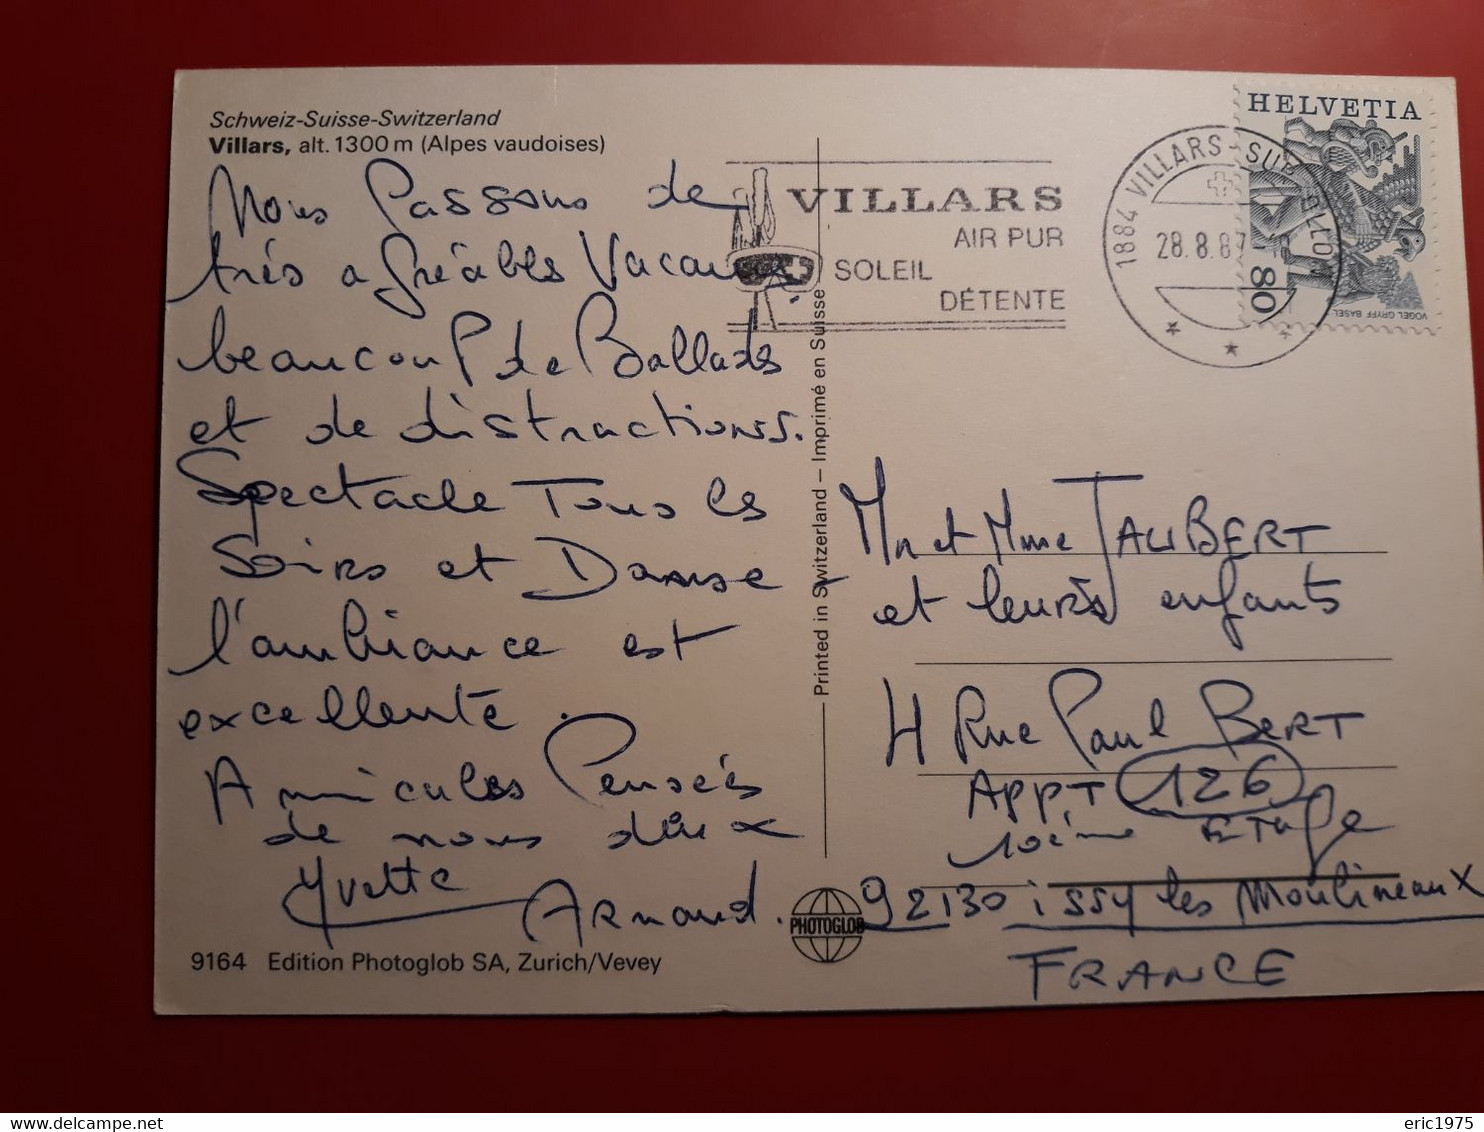 Schweiz-Suisse-Switzerland
Villars, alt. 1300 m (Alpes vaudoises)
Nous Passons de
très agréables Vacances
beaucoup de Ballades
et de distractions.
Spectacle Tous les
Soirs et Danse -
l'ambiance est
excellente.
Amicales Pensées
de nous deux
Yvette
Arnaud.
9164 Edition Photoglob SA, Zurich/Vevey
Printed in Switzerland – Imprimé en Suisse
PHOTOGLOB
VILLARS
AIR PUR
SOLEIL
DÉTENTE
1884 VILLARS-SUR-OLLON
28.8.87
HELVETIA
80
VOGEL GRYFF BASEL
Mr et Mme JAUBERT
et leurs enfants
4 Rue Paul BERT
APPT 126
10ème ETAge
92130 issy les Moulineaux
FRANCE
eric1975